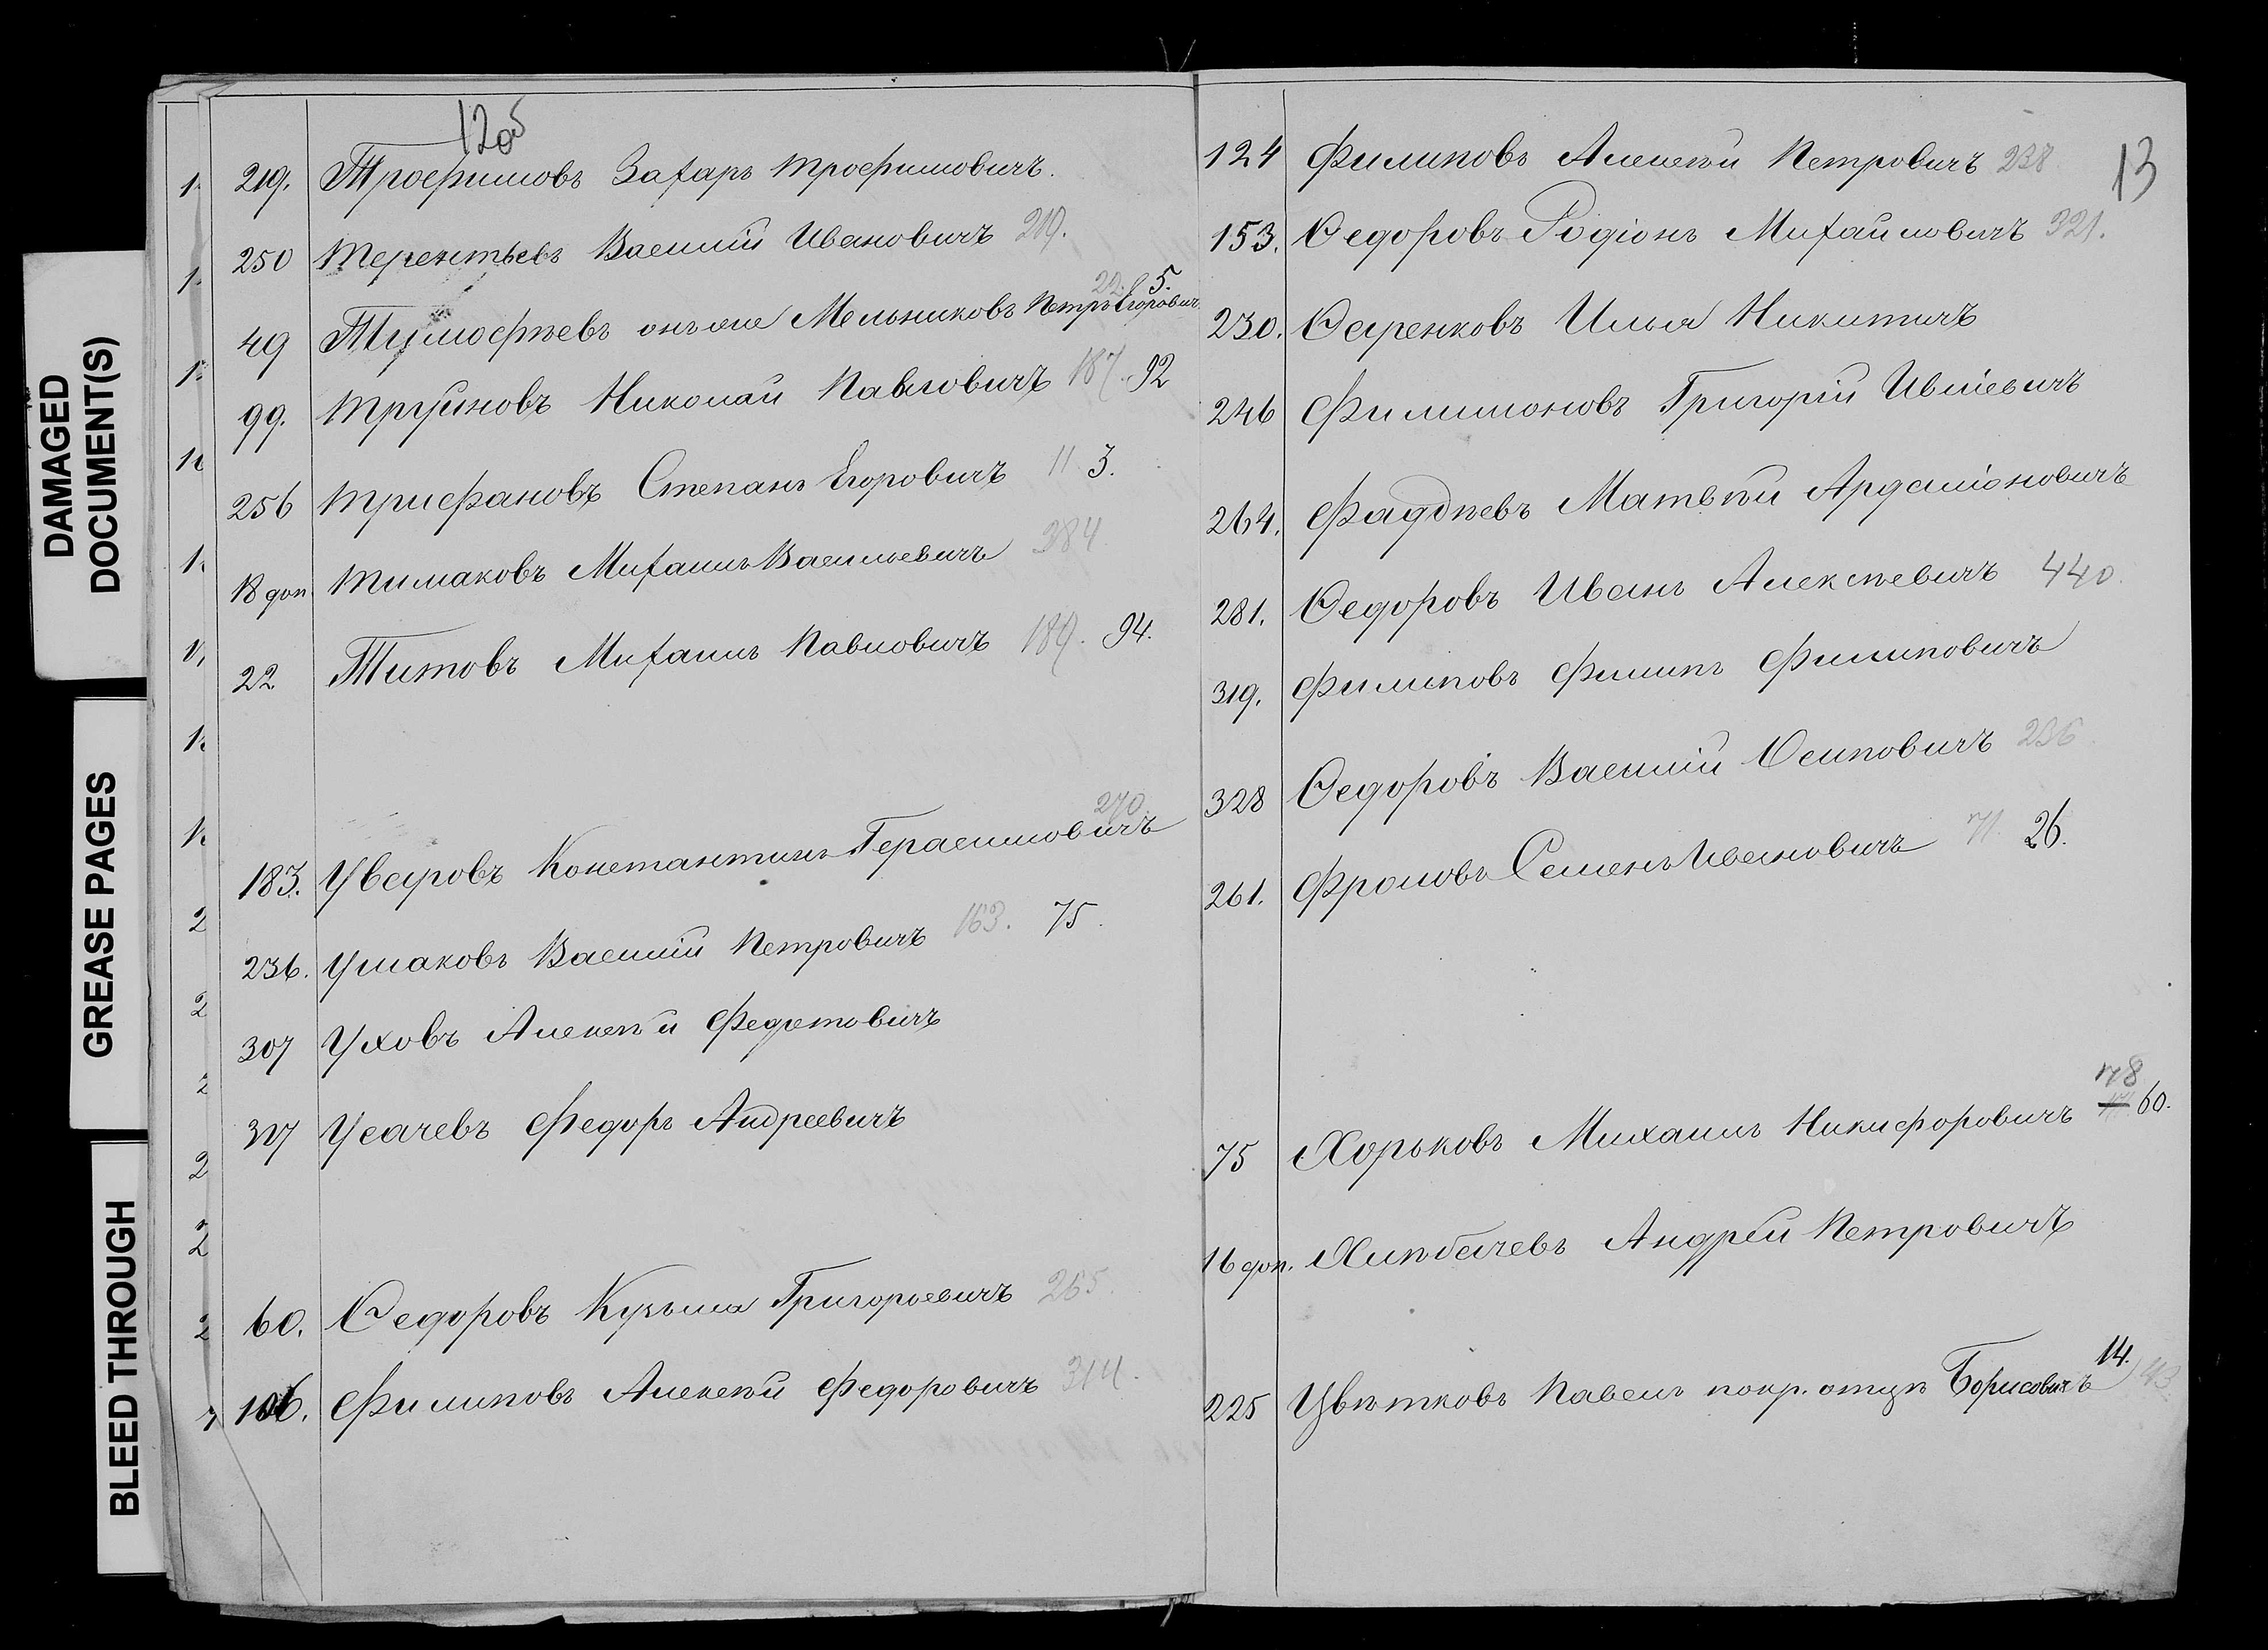 DAMAGED
DOCUMENT(S)
GREASE PAGES
BLEED THROUGH
12об
219. Трофимовъ Захаръ Трофимовичъ.
250 Терентьевъ Василій Ивановичъ 219.
22. 5.
49 Тимофѣевъ онъ же Мельниковъ Петръ Егоровичъ
99. Труновъ Николай Павловичъ 187. 92
256 Трифановъ Степанъ Егоровичъ 11 3.
18 доп. Тимаковъ Михаилъ Васильевичъ 384.
22 Титовъ Михаилъ Павловичъ 189. 94.
270.
183. Уваровъ Константинъ Герасимовичъ
236. Ушаковъ Василій Петровичъ 163. 75.
307 Уховъ Алексѣй Федотовичъ
317 Усачевъ Федоръ Андреевичъ
60. Ѳедоровъ Кузьма Григорьевичъ 265.
106. Филиповъ Алексѣй Федоровичъ 314.
13
124 Филиповъ Алексѣй Петровичъ 238
153. Ѳедоровъ Родіонъ Михайловичъ 321.
230. Ѳаренковъ Илья Никитичъ
246 Филимоновъ Григорій
264. Фаддѣевъ Матвѣй
281. Ѳедоровъ Иванъ Алексѣевичъ 440.
319. Филиповъ Филипъ Филиповичъ
328 Ѳедоровъ Василій Осиповичъ 236.
261. Фроловъ Семенъ Ивановичъ 71. 26.
178
75 Хорьковъ Михаилъ Никифоровичъ 60.
16 доп. Хлѣбачевъ Андрей Петровичъ
14.
225 Цвѣтковъ Павелъ покр. отцѣ Борисовичъ 43.